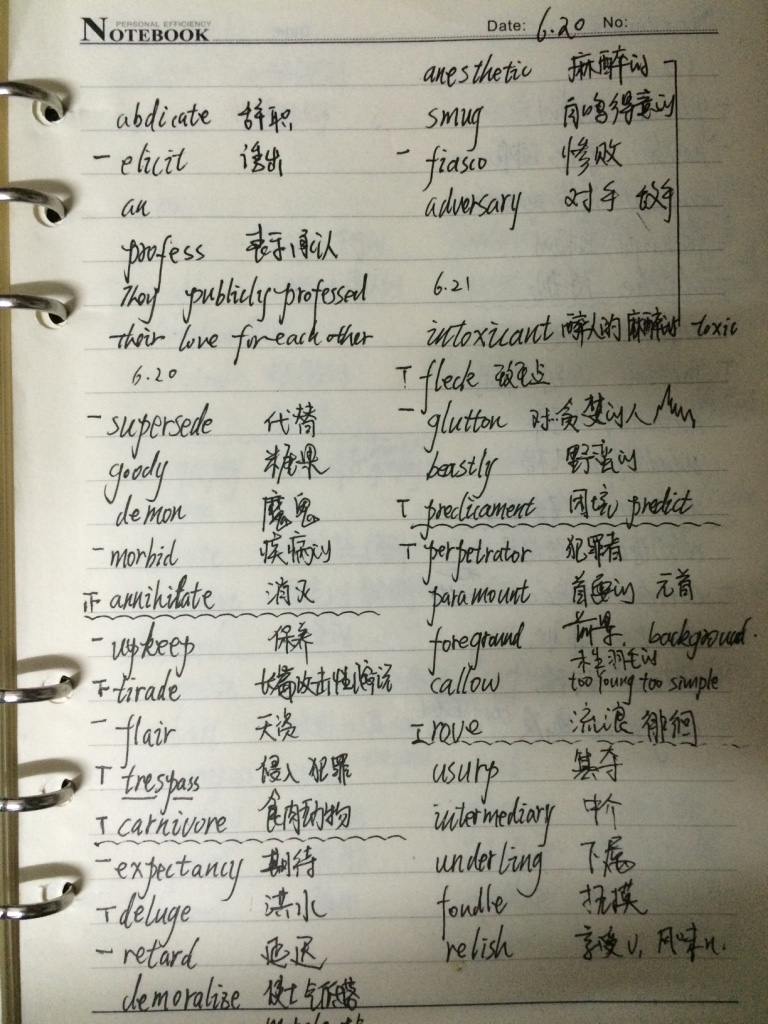 PERSONAL EFFICIENCY
NOTEBOOK
Date: 6.20 No:
abdicate 辞职
- elicit 诱出
an
profess 表示 承认
They publicly professed
their love for each other
6.20
- supersede 代替
goody 糖果
demon 魔鬼
- morbid 疾病的
正 annihilate 消灭
- upkeep 保养
tirade 长篇攻击性演说
- flair 天资
T trespass 侵入 犯罪
T carnivore 食肉动物
- expectancy 期待
T deluge 洪水
- retard 延迟
demoralize 使士气低落
anesthetic 麻醉的
smug 自鸣得意的
- fiasco 惨败
adversary 对手 敌手
6.21
intoxicant 醉人的 麻醉的 toxic
T fleck 斑点
- glutton 对贪婪的人
beastly 野蛮的
T predicament 困境 predict
T perpetrator 犯罪者
paramount 首要的 元首
foreground 前景. background.
未生羽毛的
callow too young too simple
rove 流浪 徘徊
usurp 篡夺
intermediary 中介
underling 下属
fondle 抚摸
relish 享受v, 风味n.